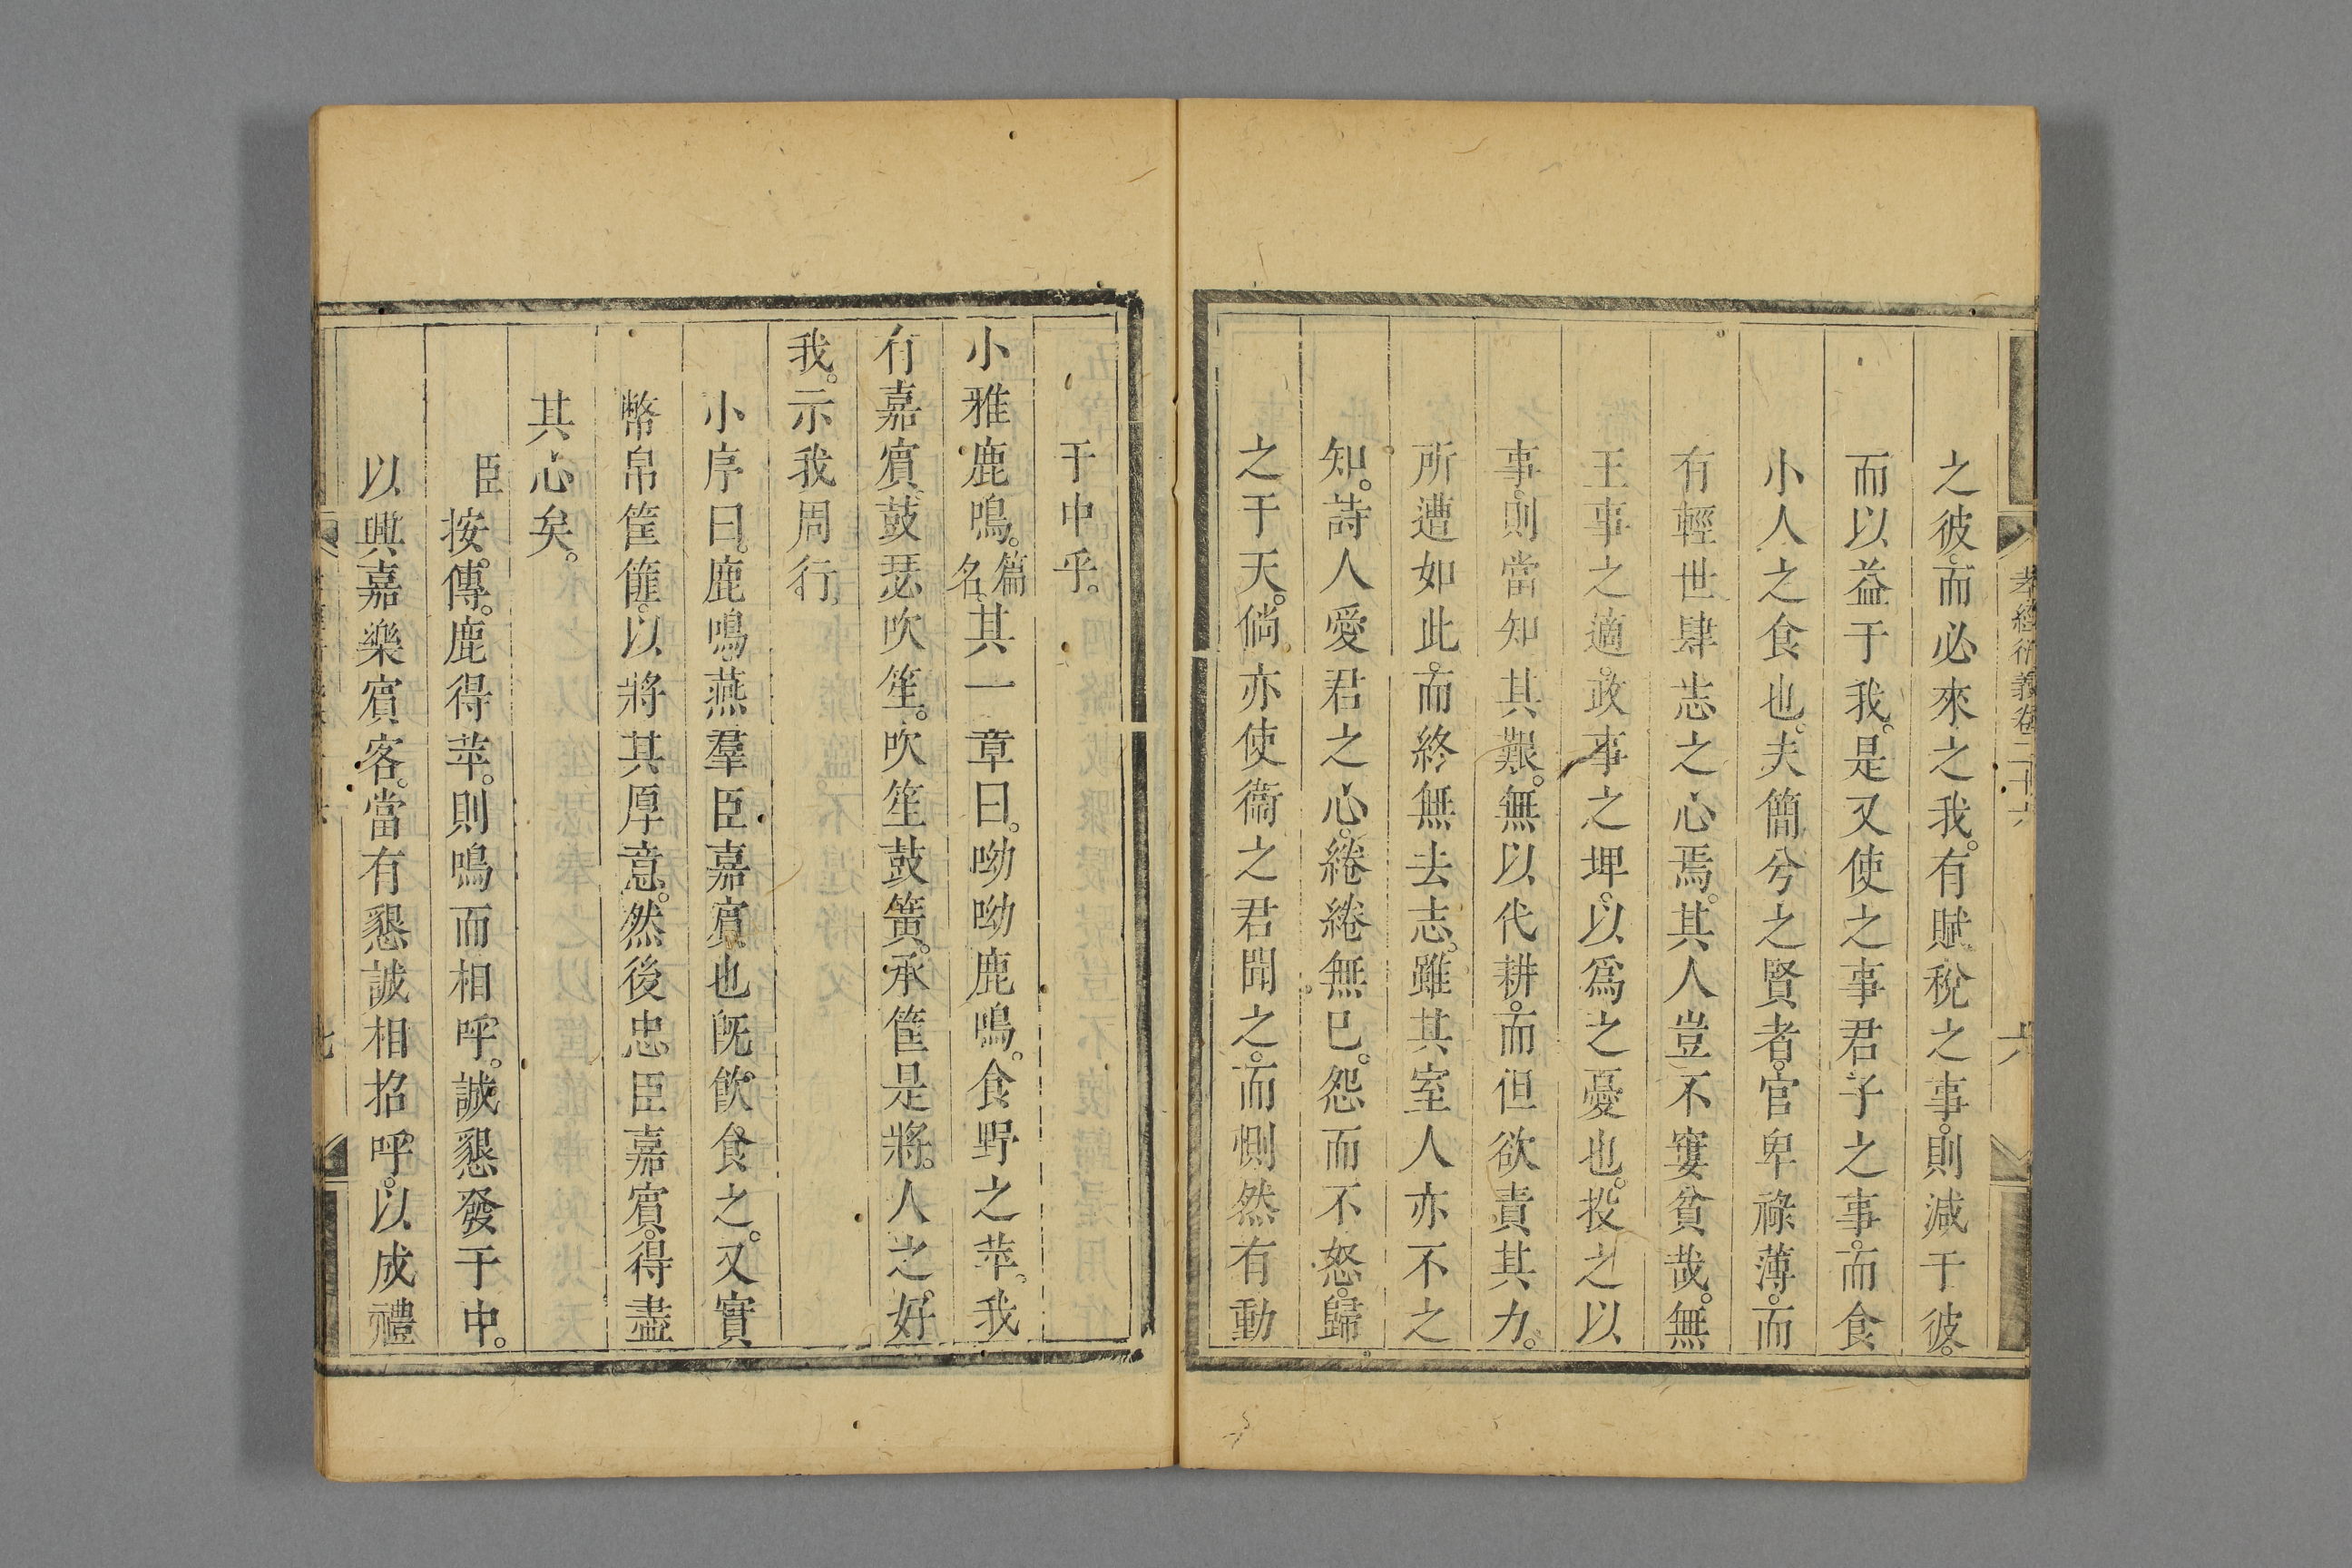 孝經衍義卷二十六
六
之彼。而必來之我。有賦稅之事。則減于彼。
而以益于我。是又使之事君子之事。而食
小人之食也。夫簡兮之賢者。官卑祿薄。而
有輕世肆志之心焉。其人豈不窶貧哉。無
王事之適。政事之埤。以爲之憂也。投之以
事。則當知其艱。無以代耕。而但欲責其力。
所遭如此。而終無去志。雖其室人亦不之
知。詩人愛君之心。綣綣無已。怨而不怒。歸
之于天。倘亦使衞之君聞之。而惻然有動
于中乎。
小雅鹿鳴。篇名。其一章曰。呦呦鹿鳴。食野之苹。我
有嘉賓。鼓瑟吹笙。吹笙鼓簧。承筐是將。人之好
我。示我周行。
小序曰。鹿鳴。燕羣臣嘉賓也。旣飮食之。又實
幣帛筐篚。以將其厚意。然後忠臣嘉賓。得盡
其心矣。
臣按。傳。鹿得苹。則鳴而相呼。誠懇發于中。
以興嘉樂賓客。當有懇誠相招呼。以成禮
七